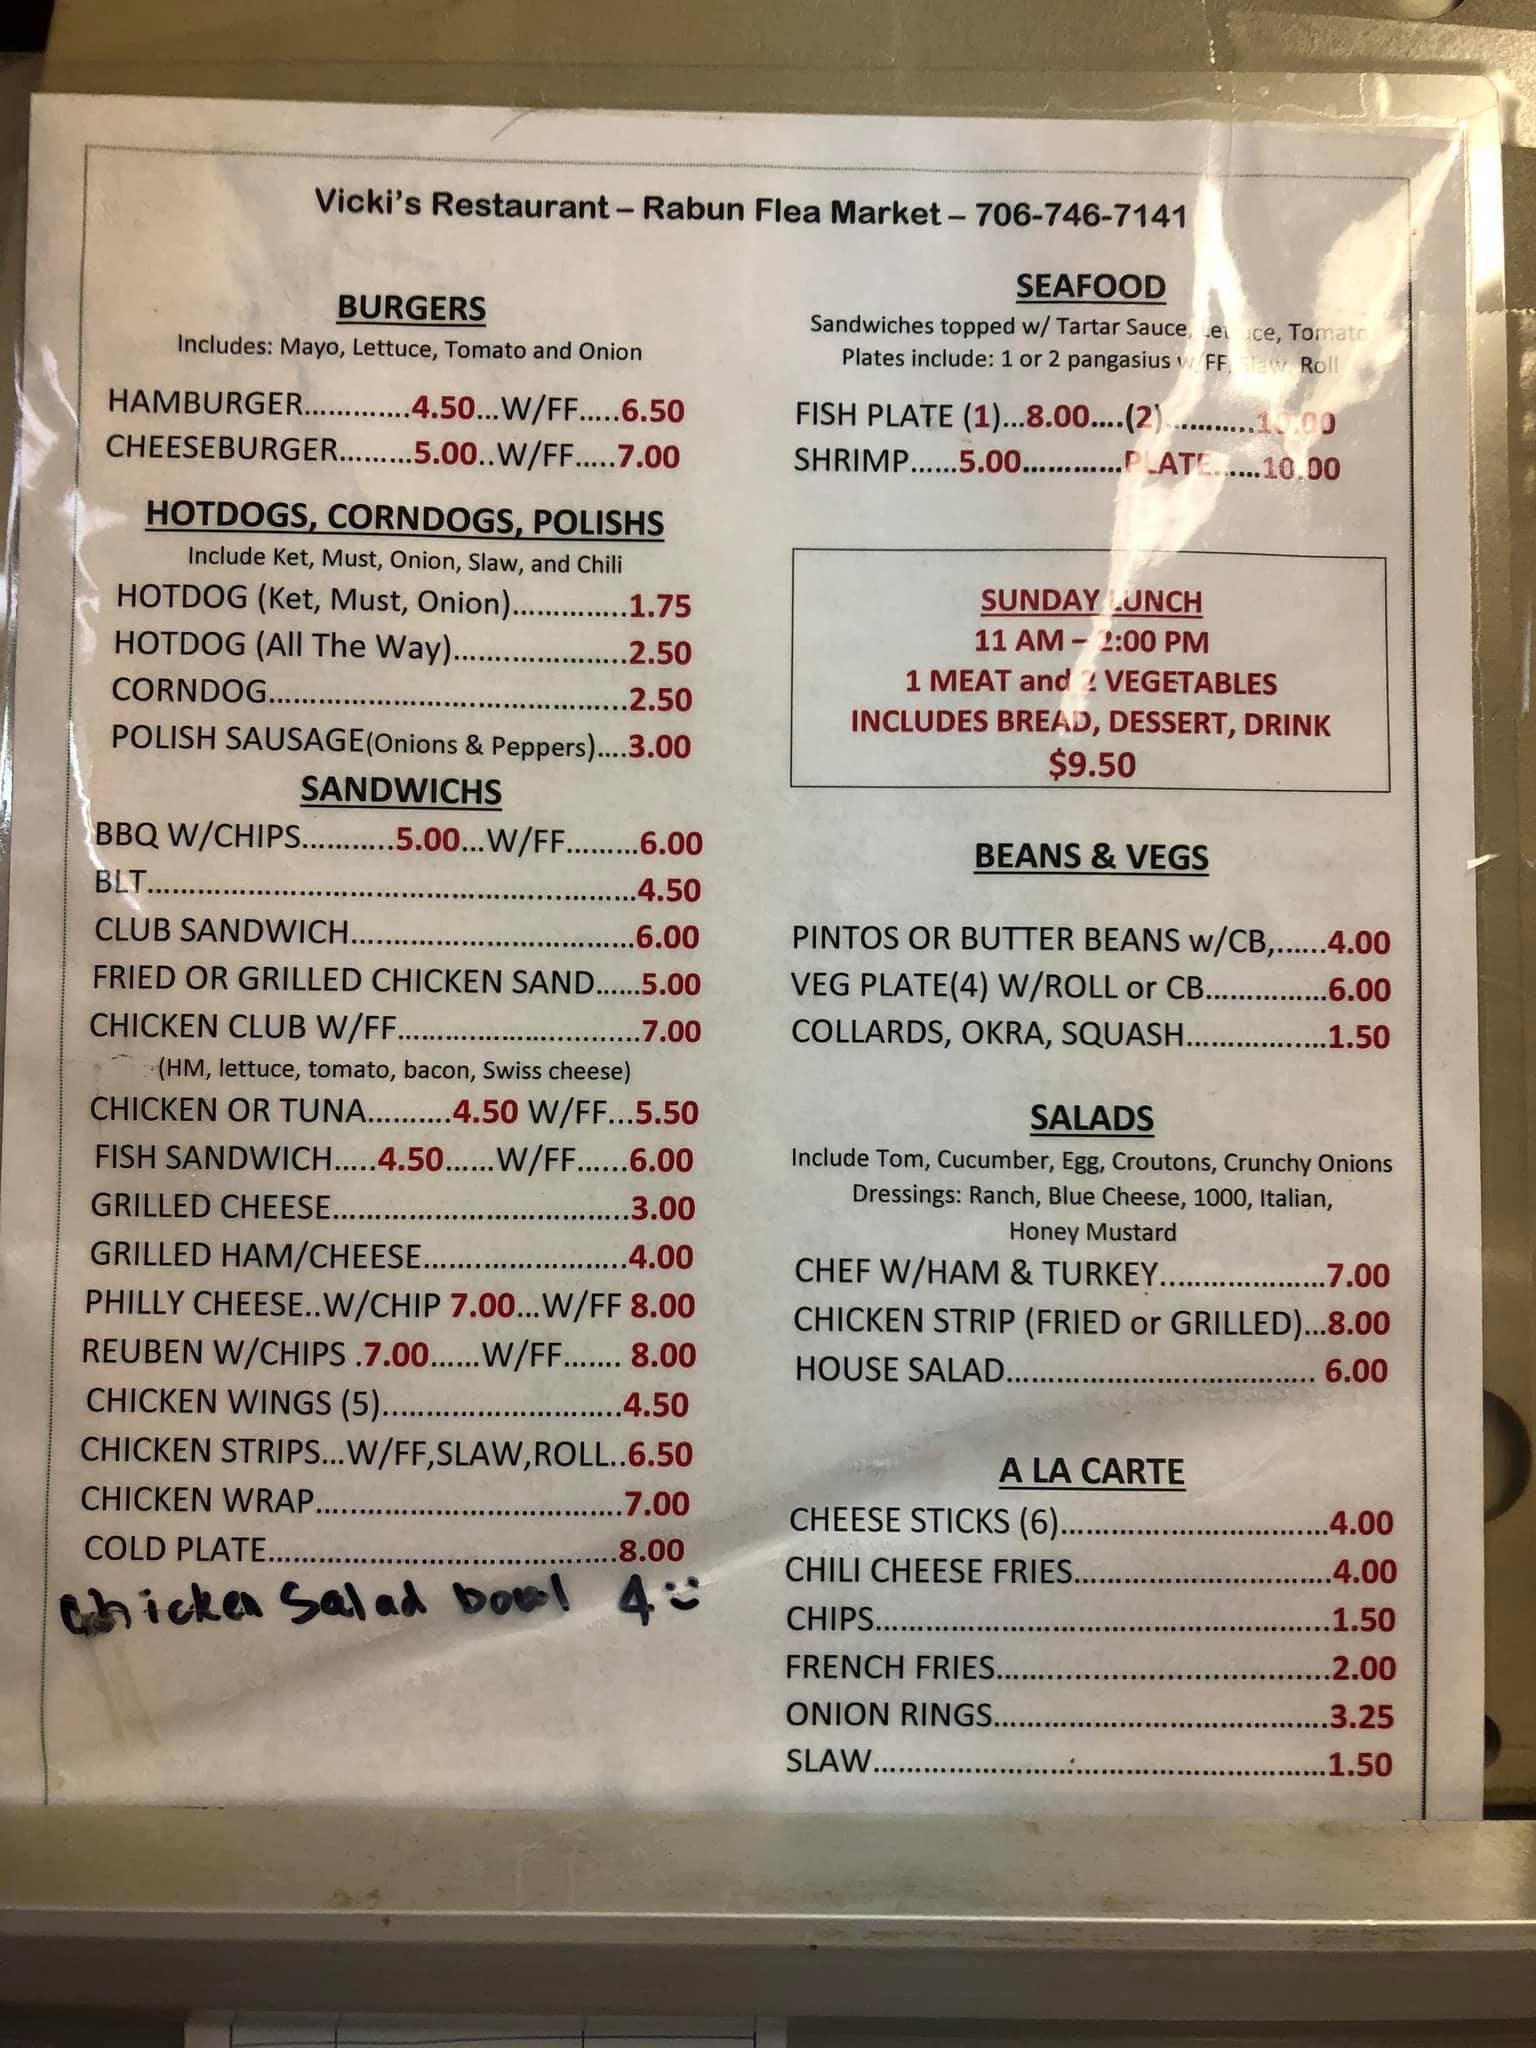 Vicki's Restaurant – Rabun Flea Market – 706-746-7141
BURGERS
Includes: Mayo, Lettuce, Tomato and Onion
HAMBURGER.............4.50...W/FF.....6.50
CHEESEBURGER.........5.00..W/FF.....7.00
HOTDOGS, CORNDOGS, POLISHS
Include Ket, Must, Onion, Slaw, and Chili
HOTDOG (Ket, Must, Onion)..............1.75
HOTDOG (All The Way).....................2.50
CORNDOG...........................................2.50
POLISH SAUSAGE(Onions & Peppers)....3.00
SANDWICHS
BBQ W/CHIPS...........5.00...W/FF.........6.00
BLT...........................................................4.50
CLUB SANDWICH..................................6.00
FRIED OR GRILLED CHICKEN SAND......5.00
CHICKEN CLUB W/FF.............................7.00
(HM, lettuce, tomato, bacon, Swiss cheese)
CHICKEN OR TUNA..........4.50 W/FF...5.50
FISH SANDWICH.....4.50......W/FF......6.00
GRILLED CHEESE....................................3.00
GRILLED HAM/CHEESE.........................4.00
PHILLY CHEESE..W/CHIP 7.00...W/FF 8.00
REUBEN W/CHIPS .7.00......W/FF....... 8.00
CHICKEN WINGS (5).............................4.50
CHICKEN STRIPS...W/FF,SLAW,ROLL..6.50
CHICKEN WRAP.....................................7.00
COLD PLATE..........................................8.00
Chicken Salad bowl 4 :)
SEAFOOD
Sandwiches topped w/ Tartar Sauce, Lettuce, Tomato
Plates include: 1 or 2 pangasius w/FF, Slaw, Roll
FISH PLATE (1)...8.00....(2)...........10.00
SHRIMP......5.00............PLATE......10.00
SUNDAY LUNCH
11 AM – 2:00 PM
1 MEAT and 2 VEGETABLES
INCLUDES BREAD, DESSERT, DRINK
$9.50
BEANS & VEGS
PINTOS OR BUTTER BEANS w/CB,......4.00
VEG PLATE(4) W/ROLL or CB...............6.00
COLLARDS, OKRA, SQUASH.................1.50
SALADS
Include Tom, Cucumber, Egg, Croutons, Crunchy Onions
Dressings: Ranch, Blue Cheese, 1000, Italian,
Honey Mustard
CHEF W/HAM & TURKEY....................7.00
CHICKEN STRIP (FRIED or GRILLED)...8.00
HOUSE SALAD..................................... 6.00
A LA CARTE
CHEESE STICKS (6)................................4.00
CHILI CHEESE FRIES...............................4.00
CHIPS.......................................................1.50
FRENCH FRIES........................................2.00
ONION RINGS.........................................3.25
SLAW.......................................................1.50